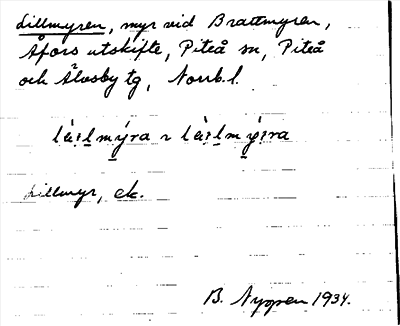 Lillmyren, myr vid Brattmyren,
Åfors utskifte, Piteå sn, Piteå
och Älvsby tg, Norrb. l.
Lillmyr, ek.
B. Nygren 1934.